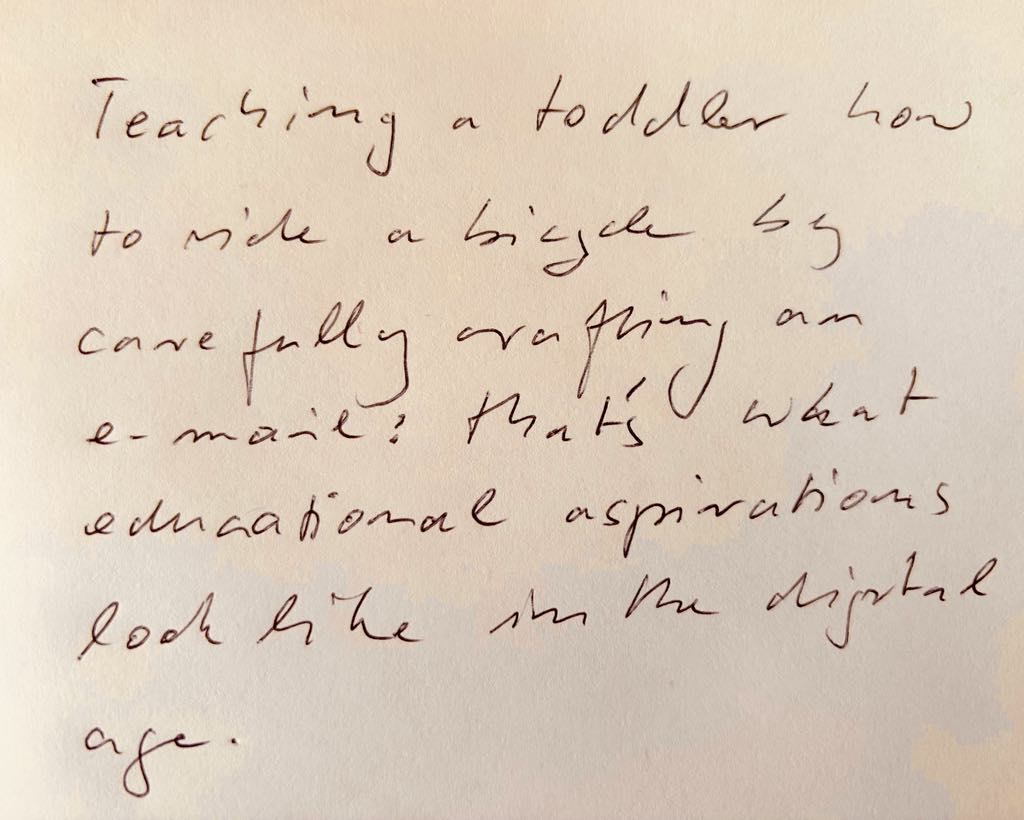 Teaching a toddler how
to ride a bicycle by
carefully crafting an
e-mail: that's what
educational aspirations
look like in the digital
age.